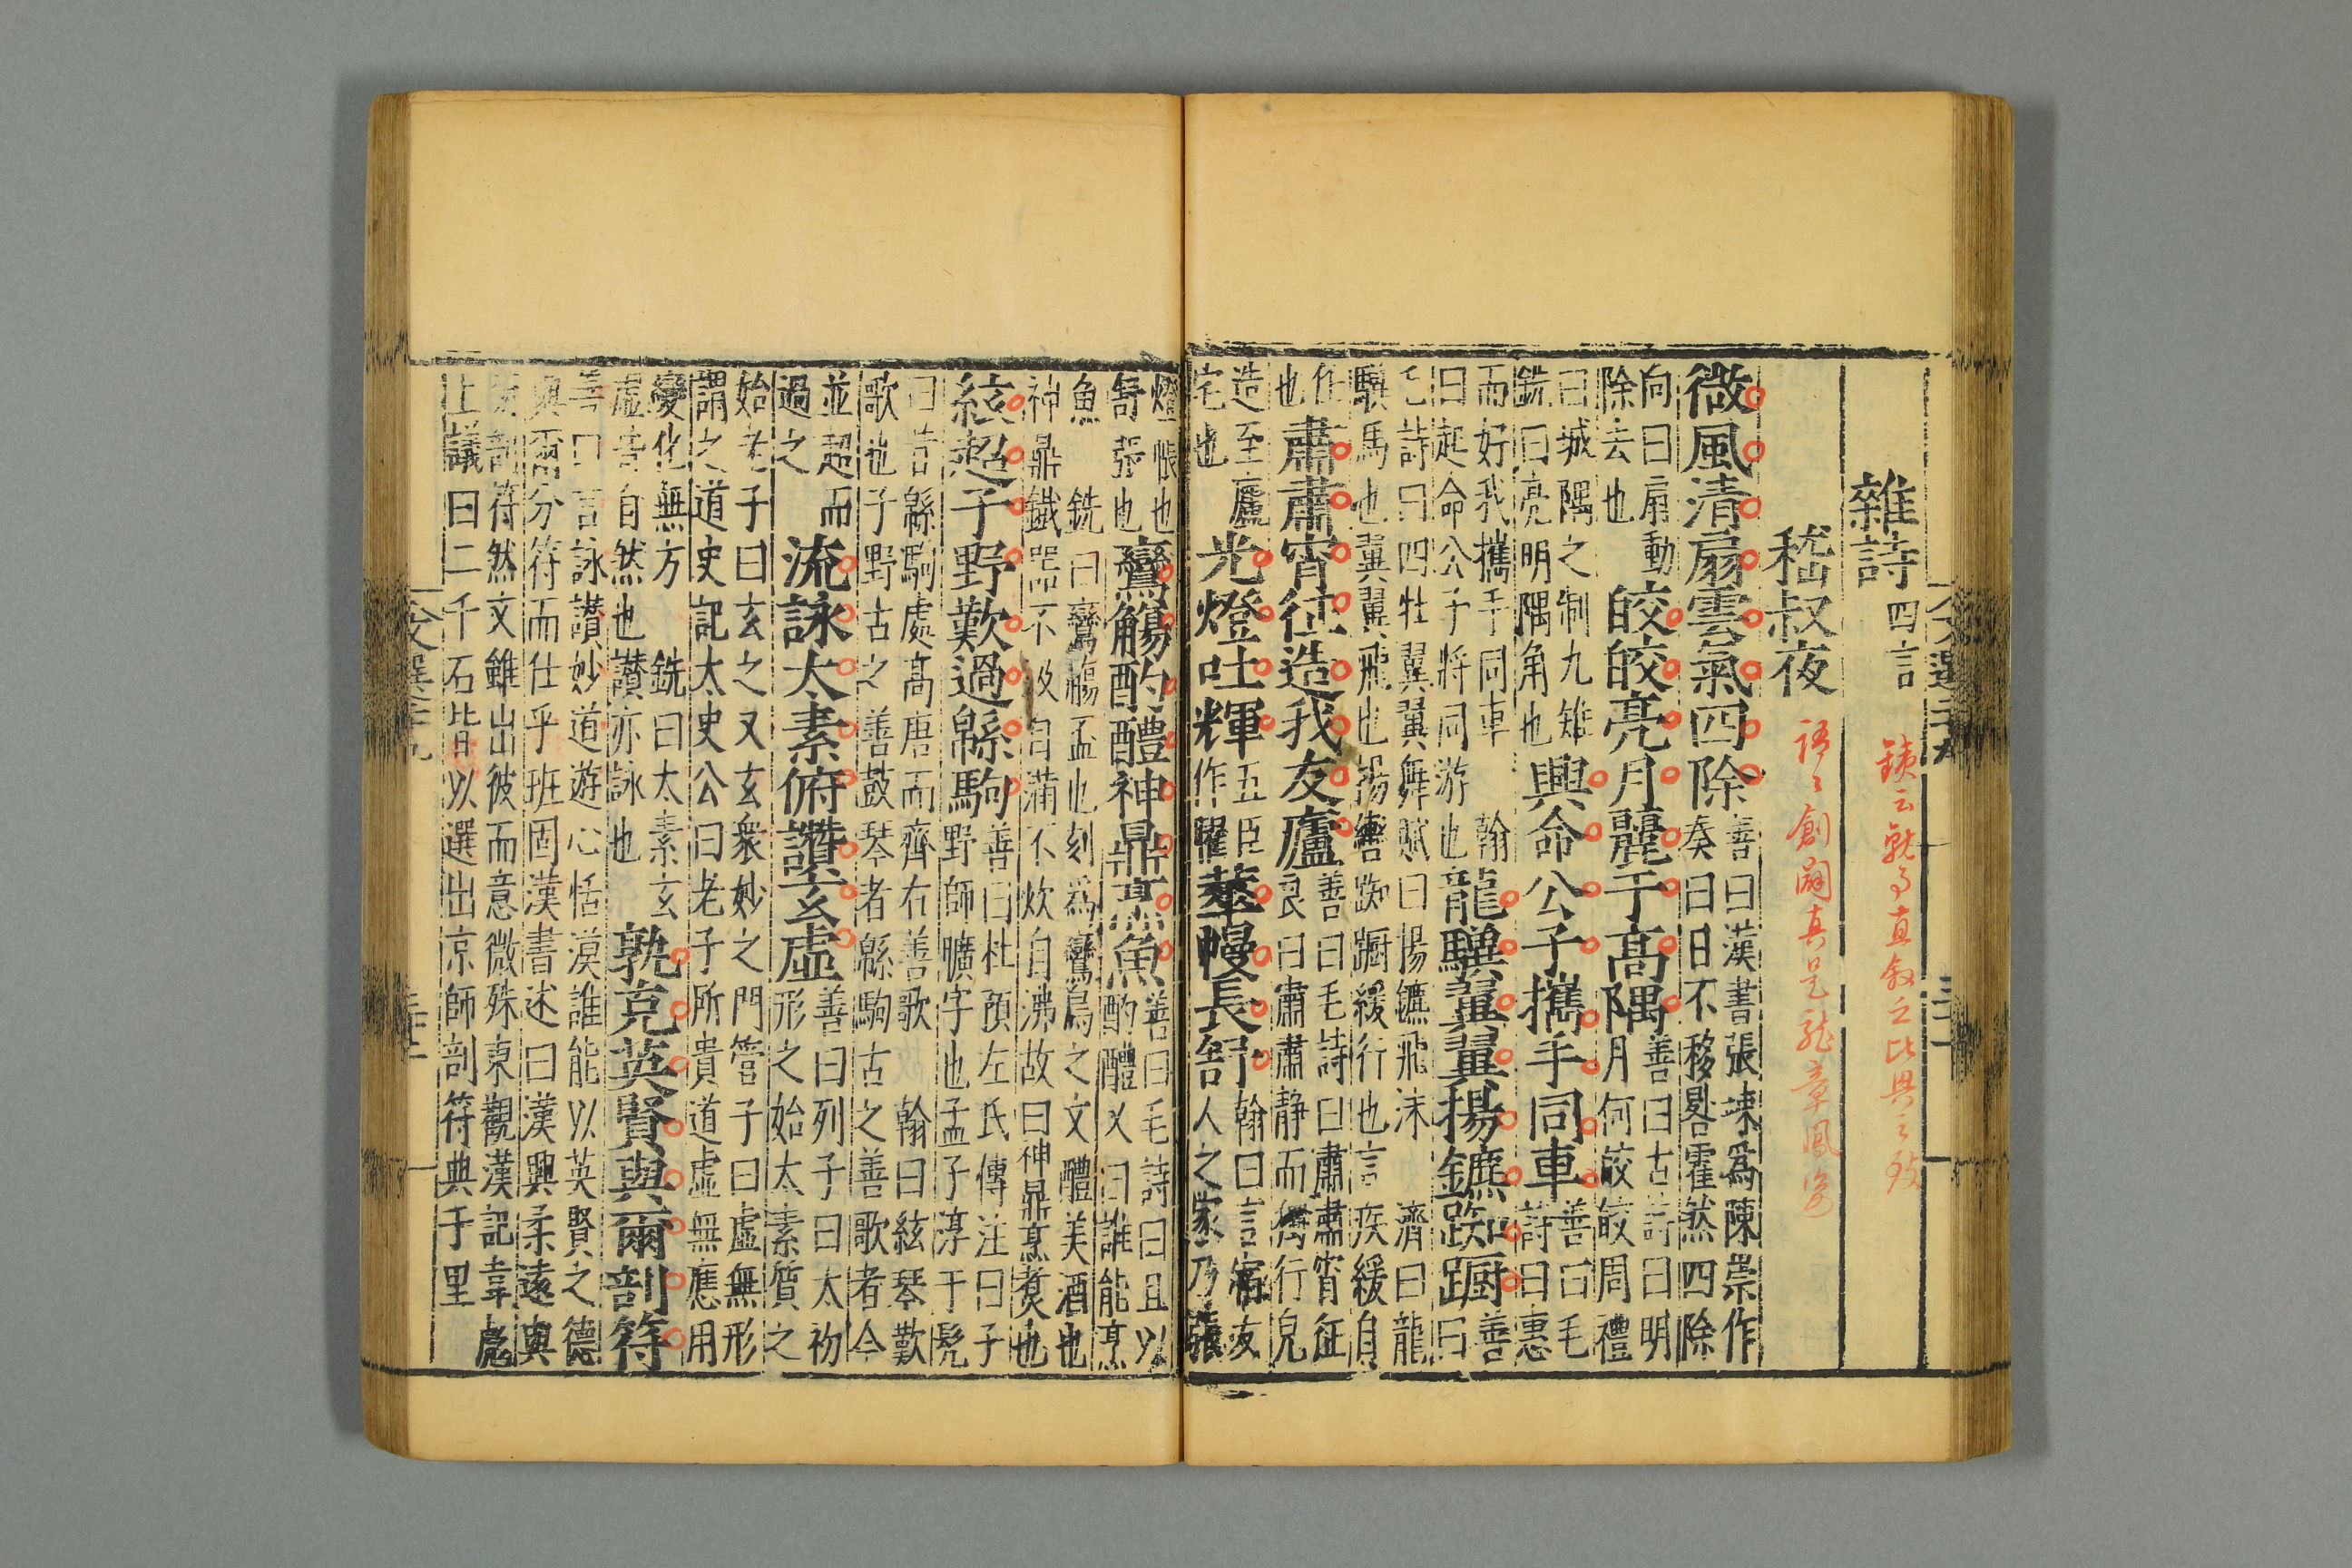 文選二十九
雜詩四言
嵇叔夜
語〻創闢真是龍章鳳姿
微風清扇雲氣四除善曰漢書張竦爲陳崇作
奏曰日不移晷霍然四除
向曰扇動
除去也皎皎亮月麗于高隅善曰古詩曰明
月何皎皎周禮
曰城隅之制九雉
銑曰亮明隅角也興命公子攜手同車善曰毛
詩曰惠
而好我攜手同車 翰
曰起命公子將同游也龍驥翼翼揚鑣踟躕善
曰
毛詩曰四牡翼翼舞賦曰揚鑣飛沫 濟曰龍
驥馬也翼翼飛也揚轡踟躕緩行也言疾緩自
任
也肅肅宵征造我友廬善曰毛詩曰肅肅宵征
良曰肅肅静而獨行皃
造至廬
宅也光燈吐輝五臣
作曜華幔長舒翰曰言宿友
人之家乃張
燈帳也
舒張也鸞觴酌醴神鼎烹魚善曰毛詩曰且以
酌醴又曰誰能烹
魚 銑曰鸞觴盃也刻爲鸞鳥之文醴美酒也
神鼎鐵器不汲自滿不炊自沸故曰神鼎烹煑也
絃超子野歎過緜駒善曰杜預左氏傳注曰子
野師曠字也孟子淳于髡
曰昔緜駒處高唐而齊右善歌 翰曰絃琴歎
歌也子野古之善鼓琴者緜駒古之善歌者今
並超而
過之流詠太素俯讚玄虛善曰列子曰太初
形之始太素質之
始老子曰玄之又玄衆妙之門管子曰虛無形
謂之道史記太史公曰老子所貴道虛無應用
變化無方 銑曰太素玄
虛言自然也讃亦詠也孰克英賢與爾剖符
善曰言詠讃妙道遊心恬漠誰能以英賢之德
與爾分符而仕乎班固漢書述曰漢興柔遠與
爾剖符然文雖出彼而意微殊東觀漢記韋彪
上議曰二千石皆以選出京師剖符典千里